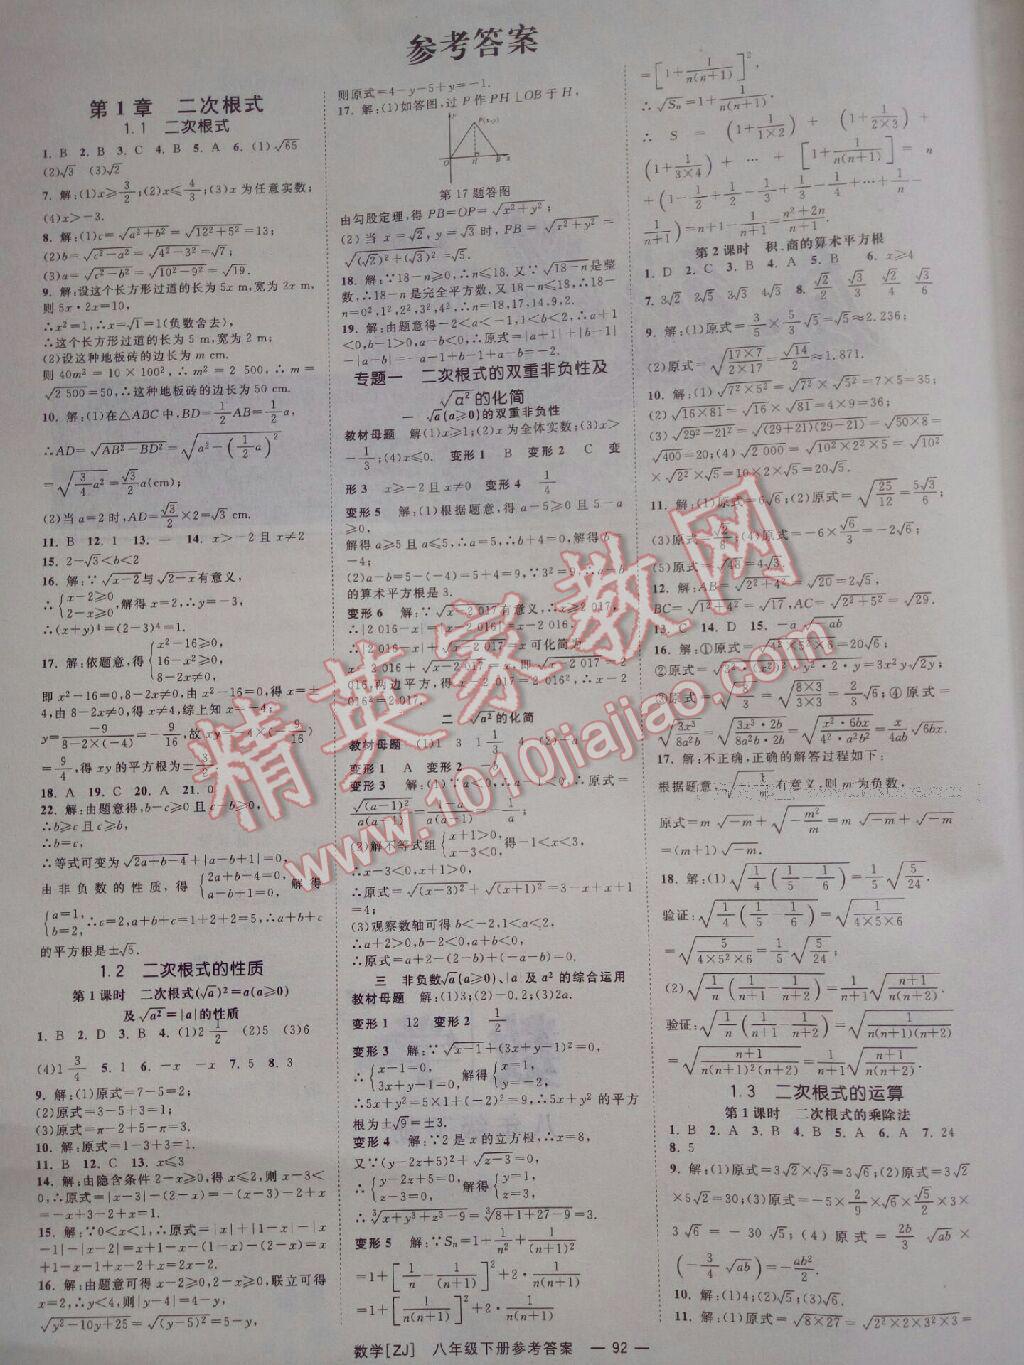 参考答案
第1章 二次根式
1.1 二次根式
1. B 2. B 3. C 4. B 5. A 6. (1)√65
(2)√3 (3)√2
7. 解:(1)x≥3/2;(2)x≤4/3;(3)x为任意实数;
(4)x>-3.
8. 解:(1)c=√(a²+b²)=√(12²+5²)=13;
(2)b=√(c²-a²)=√(4²-3²)=√7;
(3)a=√(c²-b²)=√(10²-9²)=√19.
9. 解:设这个长方形过道的长为5x m,宽为2x m,
则5x·2x=10,
∴x²=1,∴x=√1=1(负数舍去),
∴这个长方形过道的长为5 m,宽为2 m;
(2)设这种地板砖的边长为m cm.
则40m²=10×100²,∴m²=2 500,∴m=
√2 500=50,∴这种地板砖的边长为50 cm.
10. 解:(1)在△ABC中,BD=1/2AB=1/2a,
∴AD=√(AB²-BD²)=√(a²-(1/2a)²)
=√(3/4a²)=√3/2a(cm);
(2)当a=2时,AD=√3/2×2=√3 cm.
11. B 12. 1 13. — 14. x>-2且x≠2
15. 2-√3<b<2
16. 解:∵√(x-2)与√(2-x)有意义,
∴{x-2≥0, 2-x≥0,解得x=2,∴y=-3,
∴(x+y)⁴=(2-3)⁴=1.
17. 解:依题意,得{x²-16≥0, 16-x²≥0, 8-2x≠0,
即x²-16=0,8-2x≠0,由x²-16=0,得x=±
4,由8-2x≠0,得x≠4,综上知x=-4,
18. A 19. C 20. A 21. 0
22. 解:由题意得,b-c≥0且c-b≥0,
∴b≥c且c≥b,
∴b=c,
∴等式可变为√(2a+b-4)+|a-b+1|=0,
由非负数的性质,得{2a+b-4=0, a-b+1=0, 解得
{a=1, b=2,∴c=2,a+b+c=1+2+2=5,∴a+b+c
的平方根是±√5.
1.2 二次根式的性质
第1课时 二次根式(√a)²=a(a≥0)
及√a²=|a|的性质
1. B 2. D 3. B 4. (1)2 1/2 (2)5 (3)6
(4)1 3/4 5. 1 6. -x -x 7. 5 8. 3
9. 解:(1)原式=7-5=2;
(2)原式=3-5+3=1;
(3)原式=π-2+5-π=3.
10. 解:原式=1-3+3=1.
11. B 12. C 13. x≤3
14. 解:由隐含条件2-x≥0,得x≤2,则x-3<
0,∴原式=|x-3|-(2-x)=-(x-3)-2+x=
-x+3-2+x=1.
15. 解:∵0<x<1,∴原式=|x|+|1-x|-|x
-1|-|x-2|=x+1-x-(1-x)-(2-x)=
x+1-x-1+x-2+x=2x-2.
16. 解:由题意可得x-2≥0,2-x≥0,联立可得
x=2,∴y<4,则|y-4|=4-y,
√(y²-10y+25)=√((y-5)²)=5-y,
则原式=4-y-5+y=-1.
17. 解:(1)如答图,过P作PH⊥OB于H,
第17题答图
由勾股定理,得PB=OP=√(x²+y²);
(2)当x=√2,y=√3时,PB=√(x²+y²)=
√((√2)²+(√3)²)=√5.
18. 解:∵18-n≥0,∴n≤18,又∵√(18-n)是整
数,∴18-n是完全平方数,又∵n≥0,∴18-
n=0²,1²,2²,3²,4²,∴n=18,17,14,9,2.
19. 解:由题意得-2<a<-1,1<b<2,∴a+1
<0,b-1>0,a-b<0,∴原式=|a+1|+|b-1|
-|a-b|=-a-1+b-1+a-b=-2.
专题一 二次根式的双重非负性及
√a²的化简
一 √a(a≥0)的双重非负性
教材母题 解(1)x≥1;(2)x为全体实数;(3)x>
-1/3;(4)x≤0. 变形1 B 变形2 C 变
形3 x≥-2且x≠0 变形4 1/4
变形5 解:(1)根据题意,得a-5≥0且5-a
≥0,
解得a≥5且a≤5,∴a=5,∴b+4=0,解得b=
-4;
(2)a-b=5-(-4)=5+4=9,∵3²=9,∴a-b
的算术平方根是3.
变形6 解:∵√(x-2 017)有意义,∴x≥2 017,
二 √a²的化简
变形1 A 变形2
(2)解不等式组{x+1>0, x-3<0,得-1<x<3,
∴x-3<0,x+1>0,
∴原式=√((x-3)²)+√((x+1)²)=3-x+x+1
=4;
(3)观察数轴可得b<-2,1<a<2,
∴a+2>0,b-2<0,a-b>0,
∴原式=a+2-(2-b)+(a-b)=2a.
三 非负数√a(a≥0)、|a|及a²的综合运用
教材母题 解:(1)3;(2)-0.2;(3)2a.
变形1 12 变形2 1/2
变形3 解:∵√(x-1)+(3x+y-1)²=0,
∴{x-1=0, 3x+y-1=0, 解得{x=1, y=-2.
∴5x+y²=5×1+(-2)²=9,∴5x+y²的平方
根为±√9=±3.
变形4 解:∵2是x的立方根,∴x=8,
又∵(y-2z+5)²+√(z-3)=0,
∴{y-2z+5=0, z-3=0, 解得{y=1, z=3.
∴∛(x+y³+z³-9)=∛(8+1+27-9)=3.
变形5 解:∵Sₙ=1+1/n²+1/(n+1)²
=1+[1/n-1/(n+1)]²+2·1/(n(n+1))
=1+[1/(n(n+1))]²+2·1/(n(n+1))
=[1+1/(n(n+1))]²,
∴√Sₙ=1+1/(n(n+1)).
∴S=(1+1/(1×2))+(1+1/(2×3))+
(1+1/(3×4))+…+[1+1/(n(n+1))]=n
+(1-1/2+1/2-1/3+1/3-1/4+…+1/n-
1/(n+1))=n+1-1/(n+1)=(n²+2n)/(n+1).
第2课时 积、商的算术平方根
1. D 2. C 3. B 4. A 5. B 6. x≥4
9. 解:(1)原式=3/5×5/3√5=√5≈2.236;
(2)原式=√((17×7)/(2×17))=√14/2≈1.871.
10. 解:(1)√(7²×5²)=√7²×√5²=7×5=35;
(2)√(16×81)=√16×√81=4×9=36;
(3)√(29²-21²)=√((29+21)(29-21))=√(50×8)=
√400=20;(4)√2 000=√(10²×2²×5)=√10²
×√2²×√5=10×2×√5=20√5.
11. 解:(1)原式=6√6;(2)原式=√(25/12)=5√3/6;
12. 解:AB=√(2²+4²)=√20=2√5,
BC=√(1²+4²)=√17,AC=√(2²+5²)=√29.
17. 解:不正确,正确的解答过程如下:
=(m+1)√-m.
18. 解:(1)√(1/4(1/5-1/6))=1/5√(5/24).
验证:√(1/4(1/5-1/6))=√(1/(4×5×6))
=√(5/(4×5²×6))=1/5√(5/24);
(2)√(1/n(1/(n+1)-1/(n+2)))=1/(n+1)√((n+1)/(n(n+2))).
验证:√(1/n(1/(n+1)-1/(n+2)))=√(1/(n(n+1)(n+2)))
=√((n+1)/(n(n+1)²(n+2)))=1/(n+1)√((n+1)/(n(n+2))).
1.3 二次根式的运算
第1课时 二次根式的乘除法
1. B 2. A 3. A 4. B 5. A 6. A 7. 24
8. 5
9. 解:(1)原式=3√2×√3=3√6;(2)原式=3√2
×5√2=30;(3)原式=-5×2/9×√6×√5/2×3×
3√6=-30√5;(4)原式=2b/3√ab×
(-3/4√ab)=-ab²/2.
10. 解:(1)4;(2)√5;(3)√6.
数学[ZJ] 八年级下册参考答案 — 92 —
精英家教网
www.1010jiajiao.com